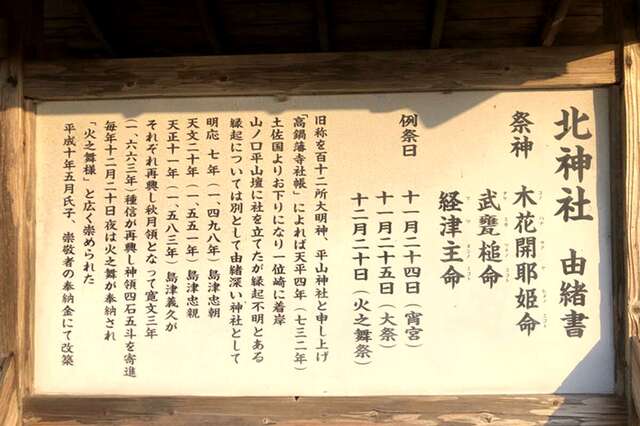 北神社 由緒書
祭神 木花開耶姫命
武甕槌命
経津主命
例祭日 十一月二十四日(宵宮)
十一月二十五日(大祭)
十二月二十日(火之舞祭)
旧称を百十二所大明神、平山神社と申し上げ
「高鍋藩寺社帳」によれば天平四年(七三二年)
土佐国よりお下りになり一位崎に着岸
山ノ口平山壇に社を立てたが縁起不明とある
縁起については別として由緒深い神社として
明応 七年(一、四九八年)島津忠朝
天文二十年(一、五五一年)島津忠親
天正十一年(一、五八三年)島津義久が
それぞれ再興し秋月領となって寛文三年
(一、六六三年)種信が再興し神領四石五斗を寄進
毎年十二月二十日夜は火之舞が奉納され
「火之舞様」と広く崇められた
平成十年五月氏子、崇敬者の奉納金にて改築